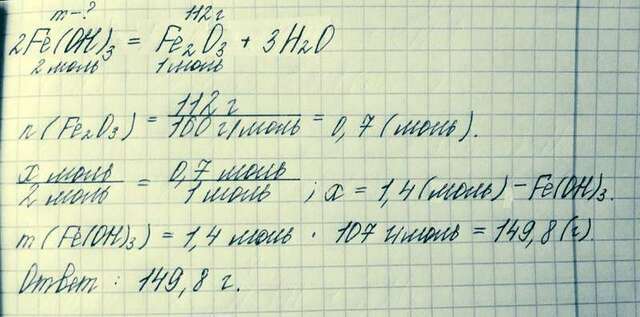 m-? 112 г
2Fe(OH)3 = Fe2O3 + 3H2O
2 моль 1 моль
n(Fe2O3) = 112 г / 160 г/моль = 0,7 (моль).
x моль / 2 моль = 0,7 моль / 1 моль ; x = 1,4 (моль) - Fe(OH)3.
m(Fe(OH)3) = 1,4 моль · 107 г/моль = 149,8 (г).
Ответ: 149,8 г.